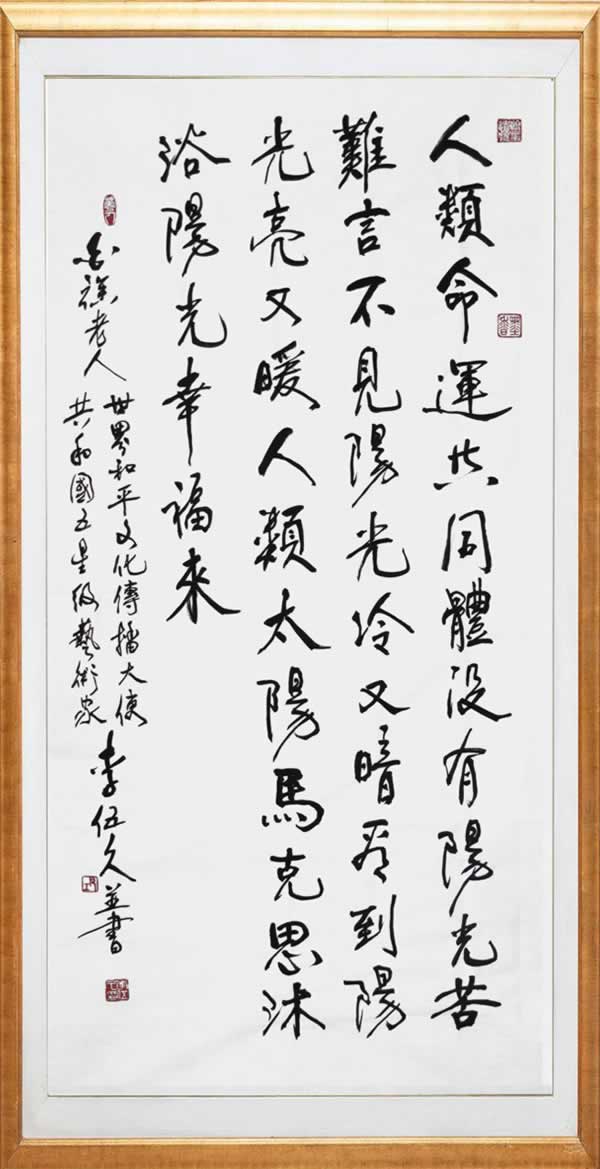 人類命運共同體没有陽光苦
難言不見陽光冷又暗看到陽
光亮又暖人類太陽馬克思沐
浴陽光幸福來
白族老人
世界和平文化傳播大使
共和國五星级藝術家
李伍久並書